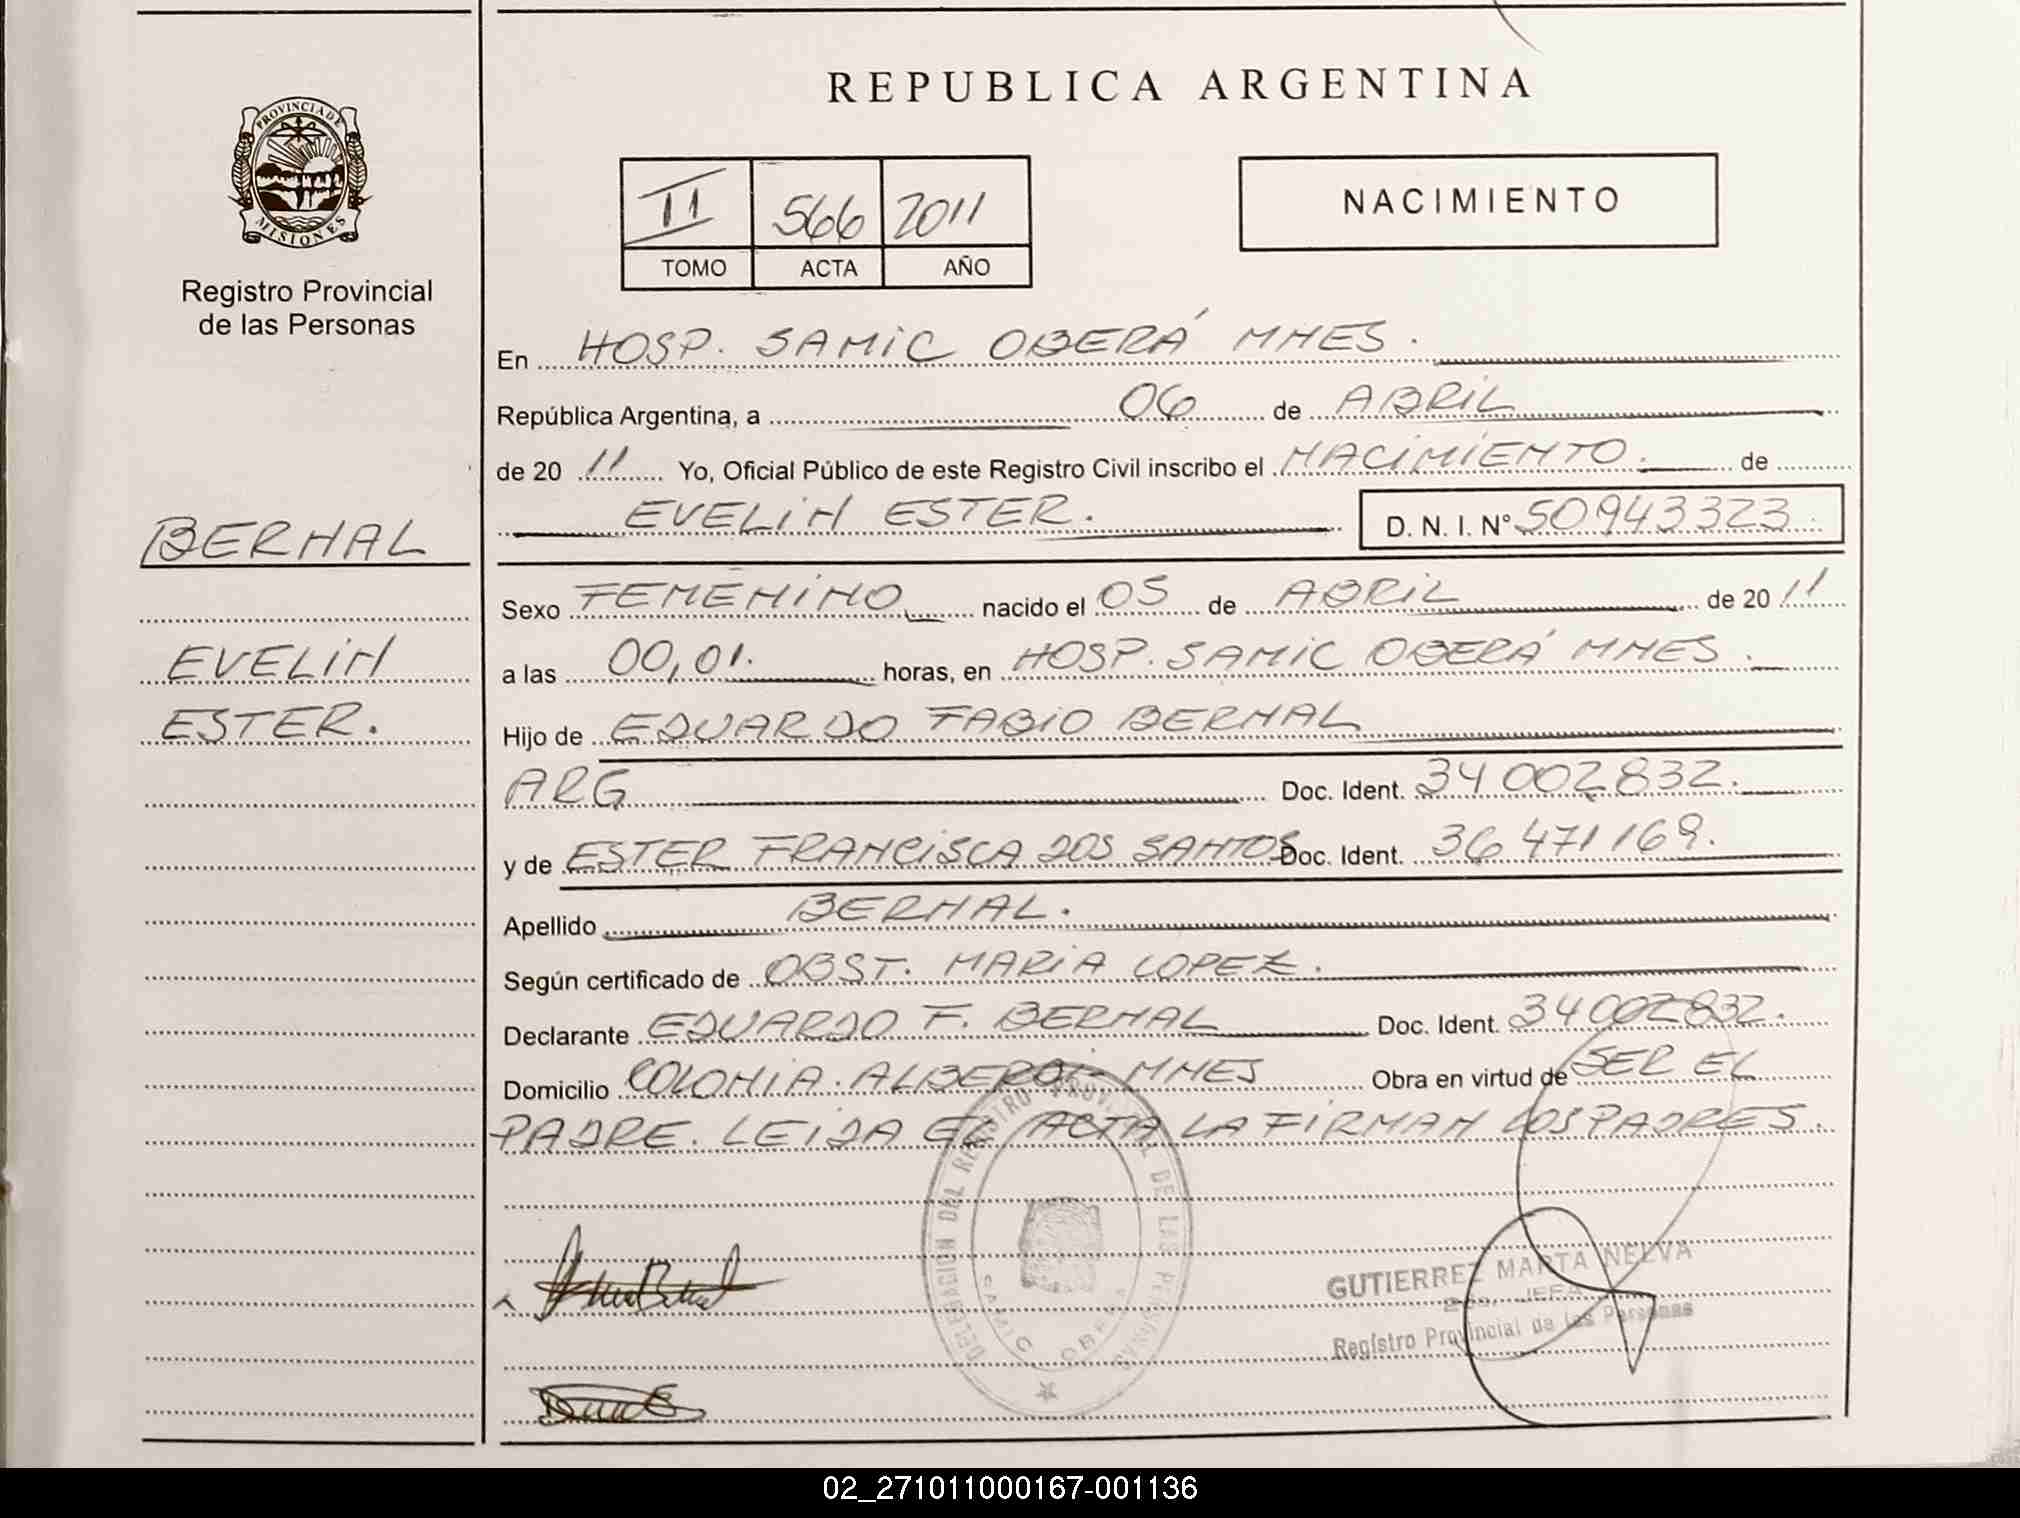 PROVINCIA DE
MISIONES
Registro Provincial
de las Personas
BERNAL
EVELIN
ESTER.
REPUBLICA ARGENTINA
II 566 2011
TOMO ACTA AÑO
NACIMIENTO
En HOSP. SAMIC OBERÁ MNES.
República Argentina, a 06 de ABRIL
de 20 11 Yo, Oficial Público de este Registro Civil inscribo el NACIMIENTO. de
EVELIN ESTER. D. N. I. N° 50943323
Sexo FEMENINO nacido el 05 de ABRIL de 20 11
a las 00,01. horas, en HOSP. SAMIC OBERÁ MNES.
Hijo de EDUARDO FABIO BERNAL
ARG Doc. Ident. 34002832.
y de ESTER FRANCISCA DOS SANTOS Doc. Ident. 36471169.
Apellido BERNAL.
Según certificado de OBST. MARIA LOPEZ.
Declarante EDUARDO F. BERNAL Doc. Ident. 34002832.
Domicilio COLONIA. ALBERDI- MNES Obra en virtud de SER EL
PADRE. LEIDA EL ACTA LA FIRMAN LOS PADRES.
DELEGACION DEL REGISTRO PROVINCIAL DE LAS PERSONAS
SAMIC OBERA
GUTIERREZ MARTA NELVA
JEFA
Registro Provincial de las Personas
02_271011000167-001136